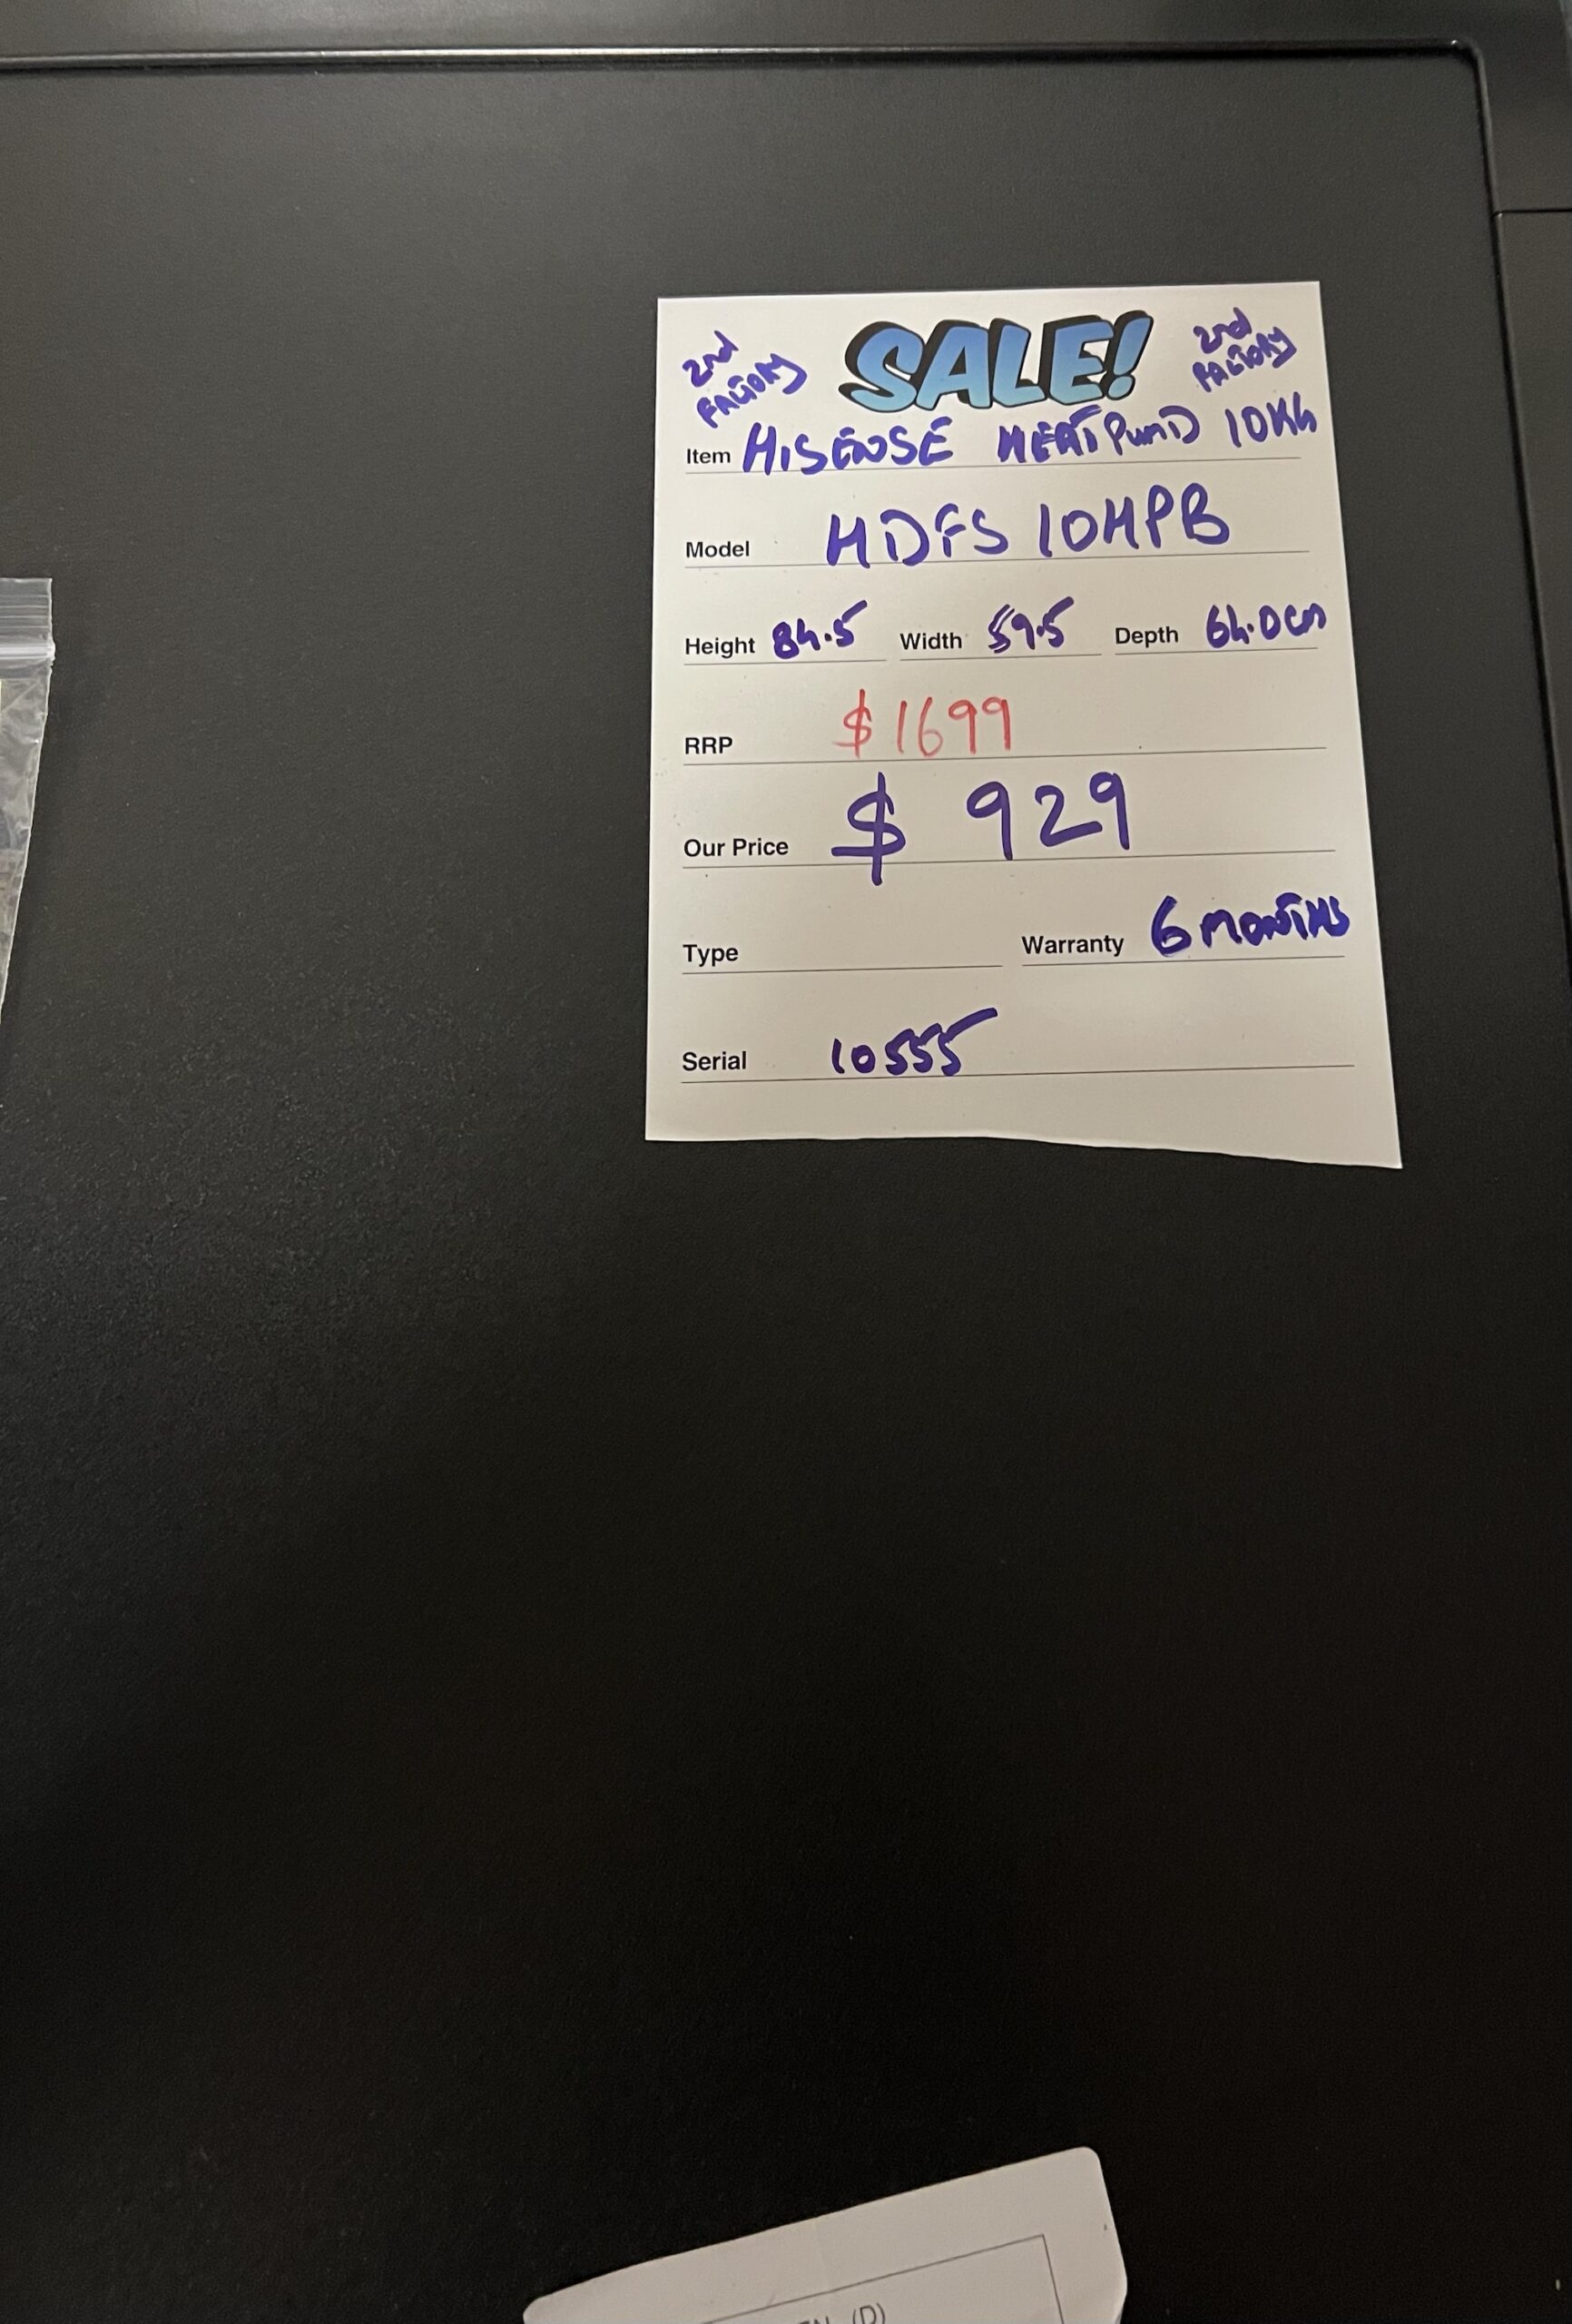 2nd FACTORY
SALE!
2nd FACTORY
Item HISENSE HEATPUMP 10KG
Model HDFS 10HPB
Height 84.5 Width 59.5 Depth 64.0cm
RRP $1699
Our Price $ 929
Type Warranty 6 MONTHS
Serial 10555
(D)